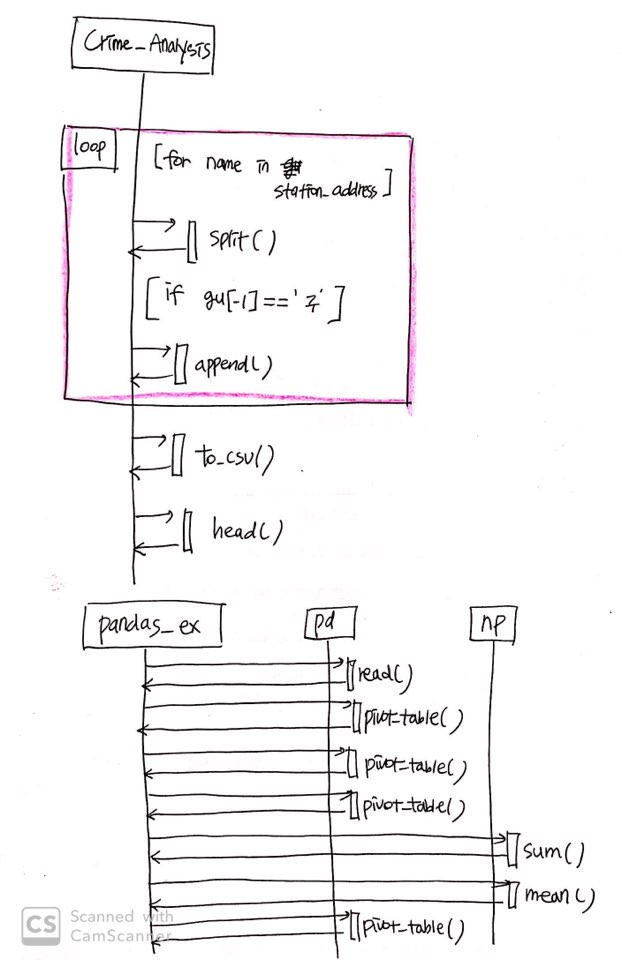 Crime_Analysis
loop
[for name in
station_address]
split()
[if gu[-1]=='구']
append()
to_csv()
head()
pandas_ex
pd
np
read()
pivot_table()
pivot_table()
pivot_table()
sum()
mean()
pivot_table()
CS
Scanned with
CamScanner